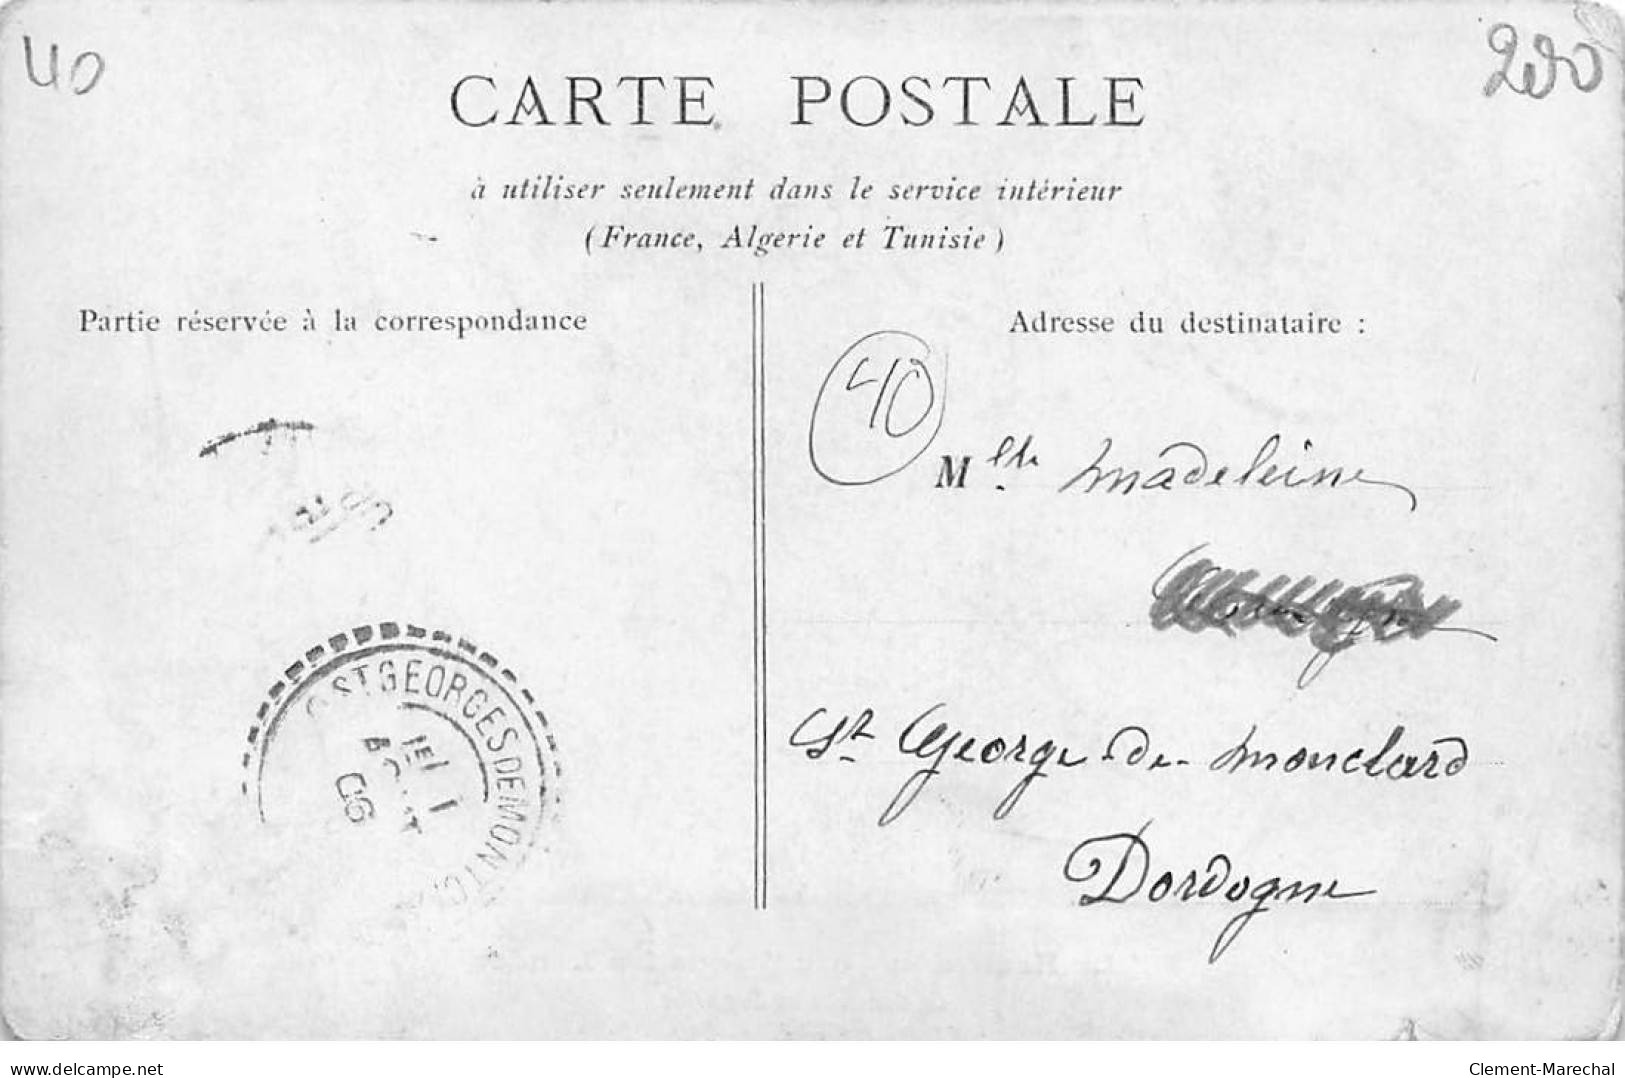 40
200
CARTE POSTALE
à utiliser seulement dans le service intérieur
(France, Algerie et Tunisie)
Partie réservée à la correspondance
Adresse du destinataire :
40
Mlle Madeleine
St George de Monclard
Dordogne
ST GEORGES DE MONTC
06
delcampe.net
Clement-Marechal